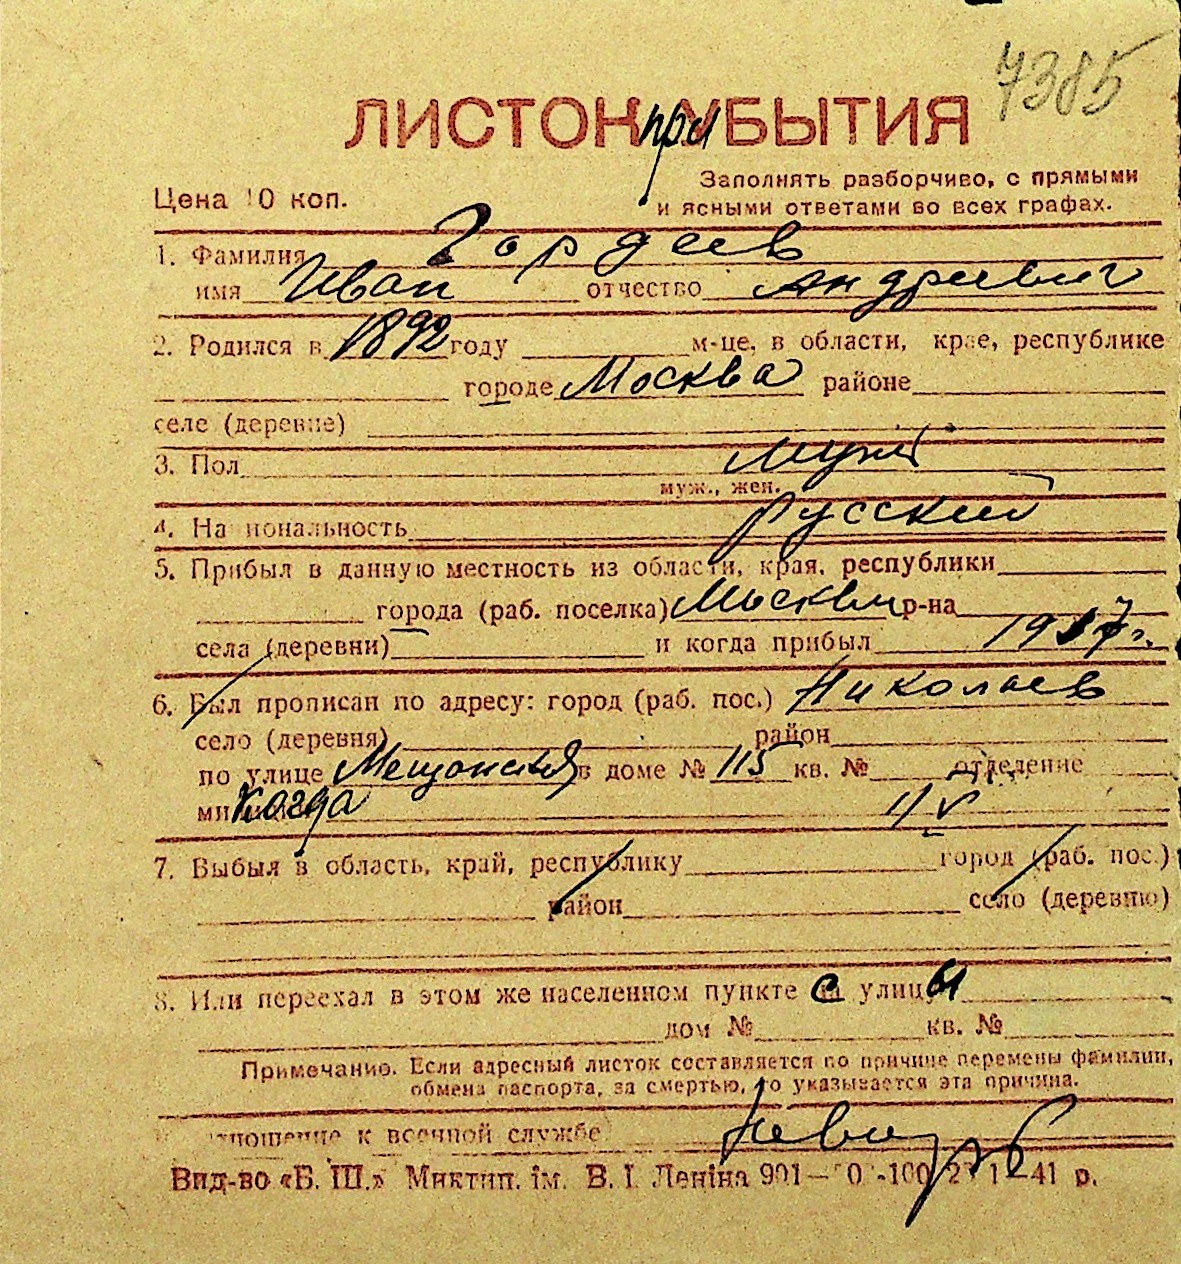 7385
ЛИСТОК при УБЫТИЯ
Заполнять разборчиво, с прямыми
Цена 10 коп. и ясными ответами во всех графах.
1. Фамилия Гордеев
имя Иван отчество Андреевич
2. Родился в 1892 году м-це, в области, крае, республике
городе Москва районе
селе (деревне)
3. Пол муж
муж., жен.
4. Национальность русский
5. Прибыл в данную местность из области, края, республики
города (раб. поселка) Москвы р-на
села (деревни) и когда прибыл 1917 г.
6. Был прописан по адресу: город (раб. пос.) Николаев
село (деревня) район
по улице Мещанская в доме № 115 кв. № отделение
Когда
7. Выбыл в область, край, республику город (раб. пос.)
район село (деревню)
8. Или переехал в этом же населенном пункте с улицы
дом № кв. №
Примечание. Если адресный листок составляется по причине перемены фамилии,
обмена паспорта, за смертью, то указывается эта причина.
отношение к военной службе
Вид-во «Б. Ш.» Миктип. ім. В. І. Леніна 901— 0 -100 27 1—41 р.